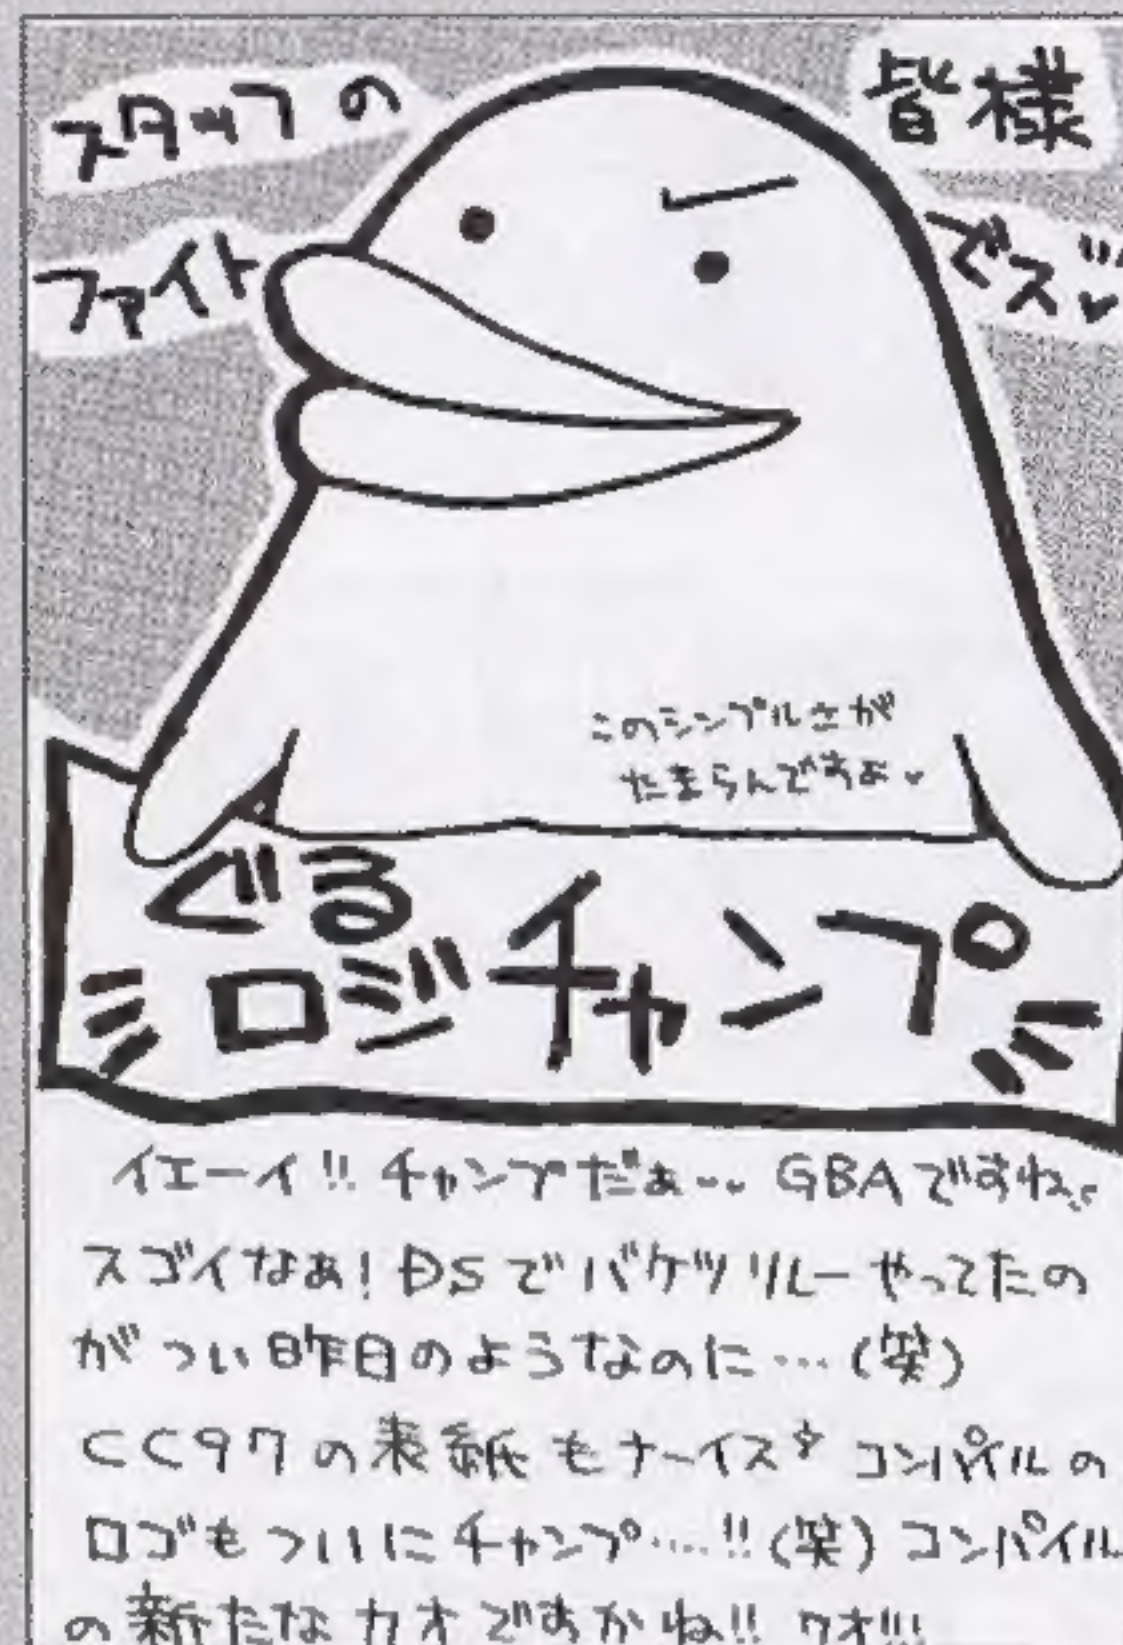 スタッフの
皆様
ファイト
でス"♥
このシンプルさが
たまらんですよ♥
ぐる
ロジチャンプ
イエーイ!! チャンプだぁ〜♥ GBAですね♥
スゴイなぁ! DSでバケツリレーやってたの
がつい昨日のようなのに…(笑)
CC97の表紙もナーイス☆ コンパイルの
ロゴもついにチャンプ…!!(笑) コンパイル
の新たなカオですかね!! クオ!!!